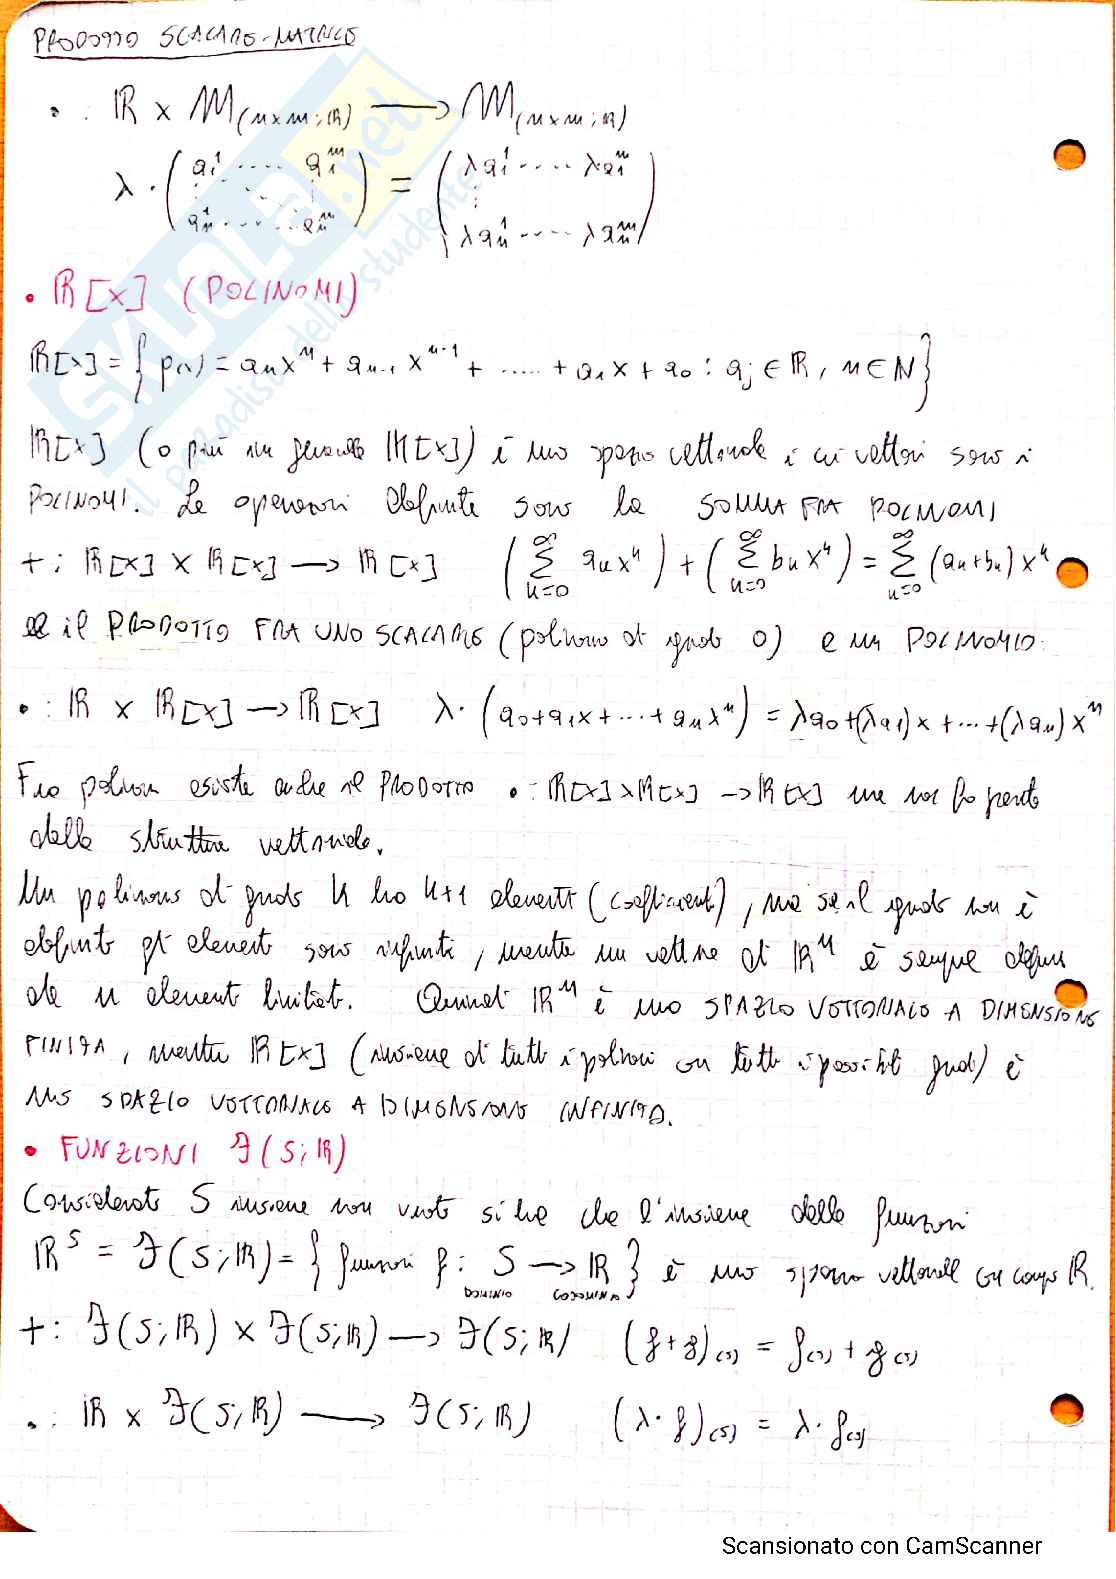 PRODOTTO SCALARE-MATRICE
• : ℝ × M(n×m; ℝ) ⟶ M(n×m; ℝ)
λ · ( a₁¹ ····· a₁ᵐ ) = ( λa₁¹ ····· λa₁ᵐ )
aₙ¹ ······ aₙᵐ    λaₙ¹ ····· λaₙᵐ
• ℝ[x] (POLINOMI)
ℝ[x] = { p(x) = aₙxⁿ + aₙ₋₁ xⁿ⁻¹ + ..... + a₁x + a₀ : aⱼ ∈ ℝ, n ∈ N }
ℝ[x] (o più in generale K[x]) è uno spazio vettoriale i cui vettori sono i
POLINOMI. Le operazioni definite sono la SOMMA FRA POLINOMI
+ : ℝ[x] × ℝ[x] ⟶ ℝ[x] (∑ₙ₌₀^∞ aₙxⁿ) + (∑ₙ₌₀^∞ bₙxⁿ) = ∑ₙ₌₀^∞ (aₙ+bₙ) xⁿ
e il PRODOTTO FRA UNO SCALARE (polinomio di grado 0) e un POLINOMIO:
• : ℝ × ℝ[x] ⟶ ℝ[x] λ · (a₀+a₁x+···+aₙxⁿ) = λa₀+(λa₁)x+···+(λaₙ)xⁿ
Fra polinomi esiste anche il PRODOTTO • : ℝ[x]×ℝ[x] ⟶ ℝ[x] ma non fa parte
della struttura vettoriale.
Un polinomio di grado n ha n+1 elementi (coefficienti), ma se il grado non è
definito gli elementi sono infiniti, mentre un vettore di ℝⁿ è sempre
da n elementi limitati. Quindi ℝⁿ è uno SPAZIO VETTORIALE A DIMENSIONE
FINITA, mentre ℝ[x] (insieme di tutti i polinomi con tutti i possibili gradi) è
uno SPAZIO VETTORIALE A DIMENSIONE INFINITA.
• FUNZIONI F(S; ℝ)
Considerato S insieme non vuoto si ha che l'insieme delle funzioni
ℝˢ = F(S; ℝ) = { funzioni f : S ⟶ ℝ } è uno spazio vettoriale su campo ℝ.
DOMINIO CODOMINIO
+ : F(S; ℝ) × F(S; ℝ) ⟶ F(S; ℝ) (f+g)(s) = f(s) + g(s)
• : ℝ × F(S; ℝ) ⟶ F(S; ℝ) (λ·f)(s) = λ·f(s)
SKUOLA.net
il paradiso dello studente
Scansionato con CamScanner